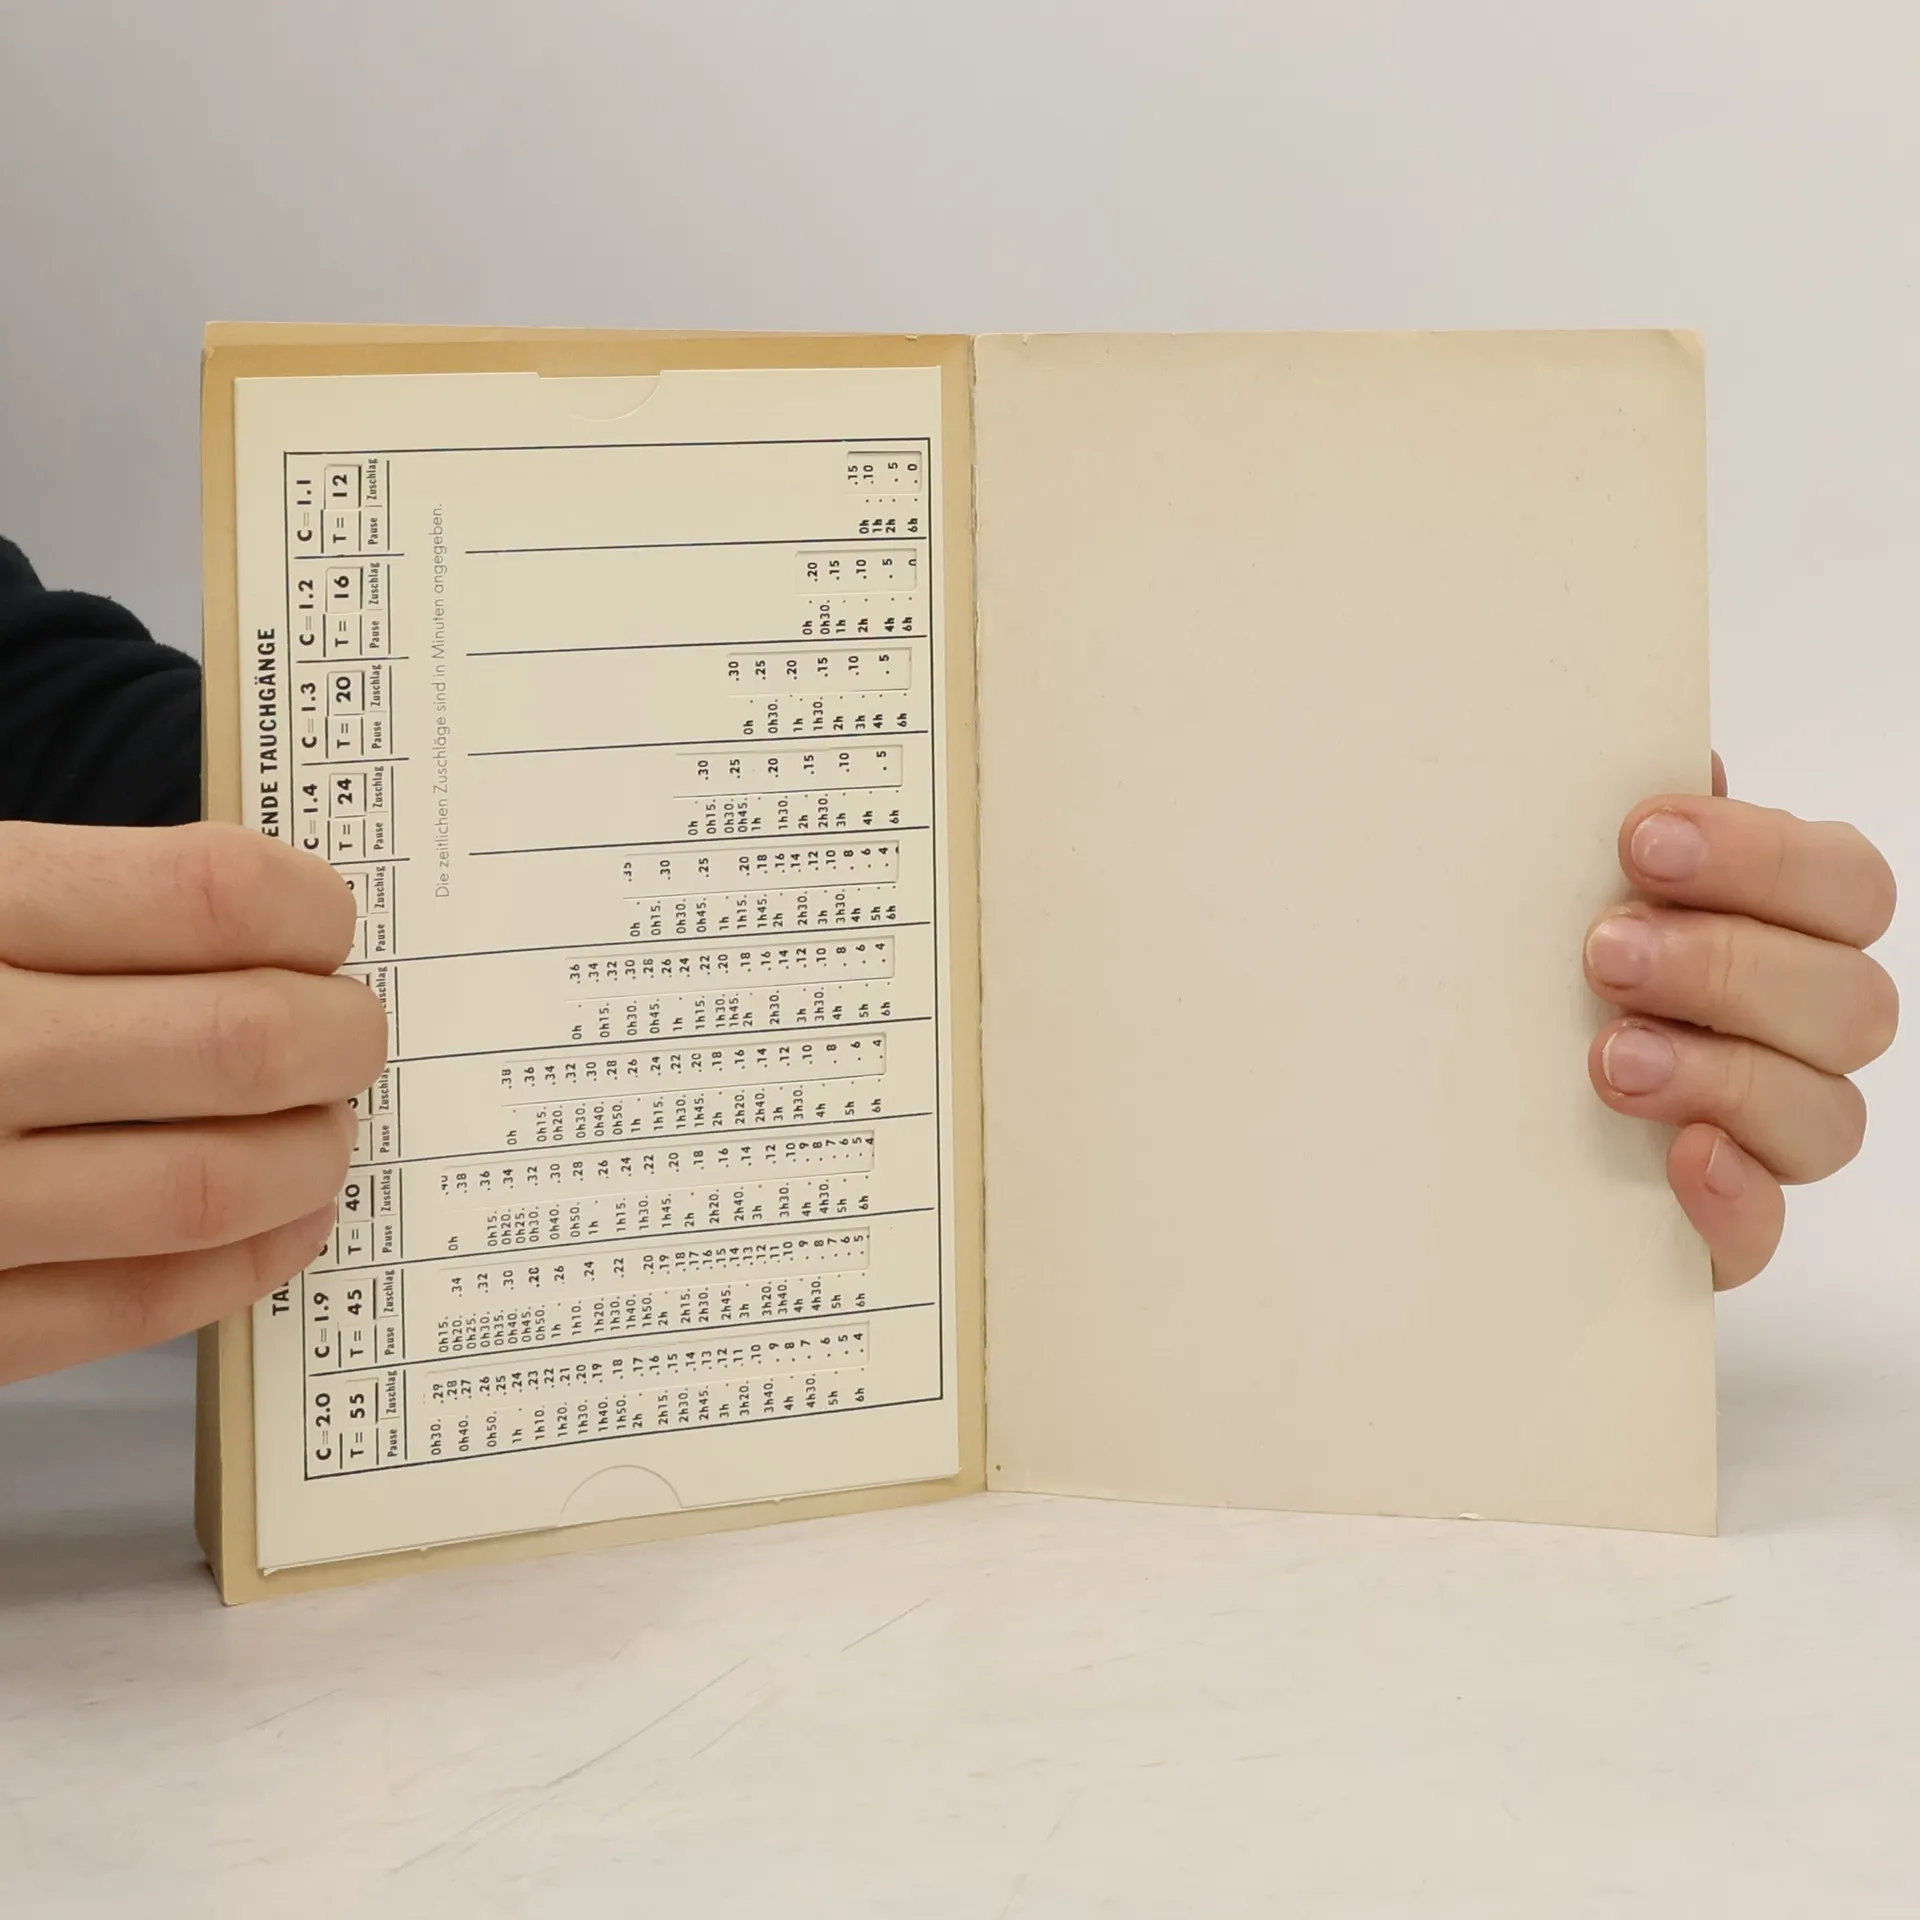 TAUCHGÄNGE
C=2.0 C=1.9 C=1.4 C=1.3 C=1.2 C=1.1
T= 55 T= 45 T= 40 T= 24 T= 20 T= 16 T= 12
Pause Zuschlag Pause Zuschlag Pause Zuschlag Pause Zuschlag Pause Pause Zuschlag Pause Zuschlag Pause Zuschlag Pause Zuschlag Pause Zuschlag
Die zeitlichen Zuschläge sind in Minuten angegeben.
0h30. .29
.28
0h40. .27
0h50. .26
.25
1h . .24
1h10. .23
.22
1h20. .21
1h30. .20
1h40. .19
1h50. .18
2h . .17
.16
2h15. .15
2h30. .14
2h45. .13
3h . .12
3h20. .11
.10
3h40. . 9
4h . . 8
4h30. . 7
5h . . 6
. 5
6h . . 4
0h15.
0h20. .34
0h25.
0h30. .32
0h35.
0h40. .30
0h45.
0h50. .28
1h . .26
1h10. .24
1h20.
1h30. .22
1h40.
1h50. .20
2h . .19
2h15. .18
.17
2h30. .16
.15
2h45. .14
3h . .13
3h20. .12
.11
3h40. .10
4h . . 9
4h30. . 8
5h . . 7
. 6
6h . . 5
0h .40
.38
0h15. .36
0h20. .34
0h25.
0h30. .32
0h40. .30
0h50. .28
1h . .26
1h15. .24
1h30. .22
1h45. .20
2h . .18
2h20. .16
2h40. .14
3h . .12
3h30. .10
4h . . 9
. 8
4h30. . 7
5h . . 6
6h . . 5
. 4
0h . .38
.36
0h15. .34
0h20. .32
0h30. .30
0h40. .28
0h50. .26
1h . .24
1h15. .22
1h30. .20
1h45. .18
2h . .16
2h20. .14
2h40. .12
3h . .10
3h30. . 8
4h .
5h . . 6
6h . . 4
0h . .36
.34
0h15. .32
0h30. .30
0h45. .28
.26
1h . .24
1h15. .22
1h30. .20
1h45.
2h . .18
.16
2h30. .14
3h . .12
3h30. .10
4h . . 8
5h . . 6
6h . . 4
0h . .35
0h15. .30
0h30.
0h45. .25
1h .
1h15. .20
1h45. .18
2h . .16
.14
2h30. .12
3h . .10
3h30. . 8
4h .
5h . . 6
6h . . 4
0h . .30
0h15.
0h30. .25
0h45.
1h . .20
1h30.
2h . .15
2h30.
3h . .10
4h .
6h . . 5
0h . .30
0h30. .25
1h . .20
1h30. .15
2h .
3h . .10
4h . . 5
6h .
0h . .20
0h30. .15
1h .
2h . .10
4h . . 5
6h . 0
0h . .15
1h . .10
2h . . 5
6h . . 0